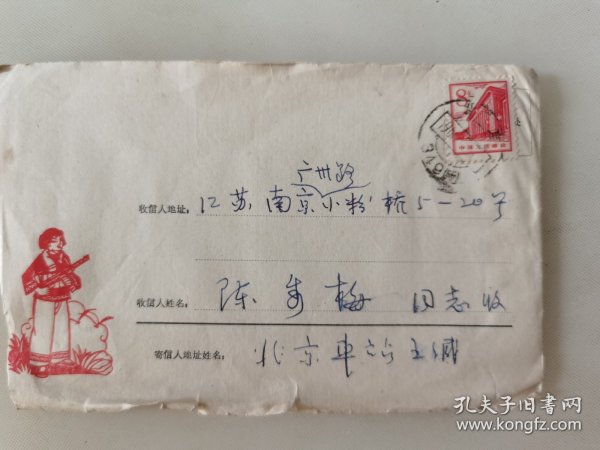 8
中国人民邮政
广州路
收信人地址: 江苏南京小粉桥5-20号
收信人姓名: 陈秀梅 同志收
寄信人地址姓名: 北京车站王
孔夫子旧书网
www.kongfz.com